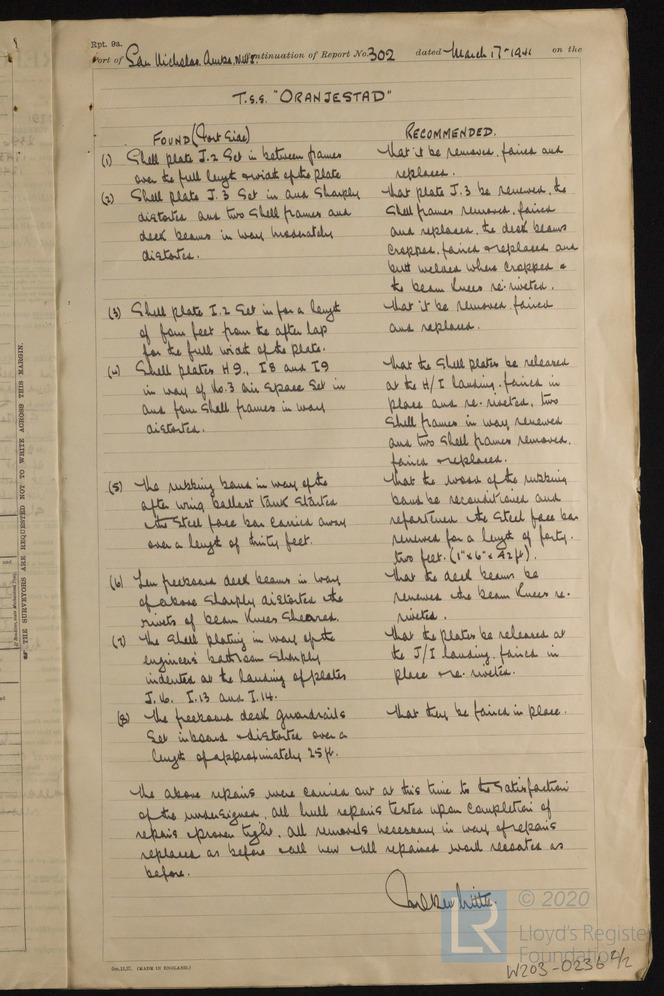 Rpt. 9a.
Port of San Nicholas. Aruba. N.W.I. Continuation of Report No. 302 dated March 17-1941 on the
T.S.S. "ORANJESTAD"
FOUND (Port Side)
RECOMMENDED.
(1) Shell plate J.2 Set in between frames
over the full length & width of the plate
That it be removed, faired and
replaced.
(2) Shell plate J.3 Set in and Sharply
distorted and two Shell frames and
deck beams in way moderately
distorted.
That plate J.3 be renewed, the
Shell frames removed, faired
and replaced, the deck beams
cropped, faired & replaced and
butt welded where cropped &
the beam knees re-riveted.
(3) Shell plate I.2 Set in for a length
of four feet from the after lap
for the full width of the plate.
That it be removed, faired
and replaced.
(4) Shell plates H9., I8 and I9
in way of No.3 air Space Set in
and four Shell frames in way
distorted.
That the Shell plates be released
at the H/I landing, faired in
place and re-riveted, two
Shell frames in way renewed
and two Shell frames removed,
faired & replaced.
(5) The rubbing band in way of the
after wing ballast tank Started
& the Steel face bar carried away
over a length of thirty feet.
That the wood of the rubbing
band be reconditioned and
refastened & the Steel face bar
renewed for a length of forty-
two feet. (1" x 6" x 42ft).
(6) Ten freeboard deck beams in way
of above Sharply distorted & the
rivets of beam knees Sheared.
That the deck beams be
renewed & the beam knees re-
riveted.
(7) The Shell plating in way of the
engineers' bathroom Sharply
indented at the landing of plates
J.16. I.13 and I.14.
That the plates be released at
the J/I landing, faired in
place & re-riveted.
(8) The freeboard deck guardrails
Set inboard & distorted over a
length of approximately 25ft.
That they be faired in place.
The above repairs were carried out at this time to the Satisfaction
of the undersigned, all hull repairs tested upon completion of
repairs & proven tight. All removals necessary in way of repairs
replaced as before & all new & all repaired work recoated as
before.
© 2020
LR
Lloyd's Register
Foundation
W203-0236 2/2
THE SURVEYORS ARE REQUESTED NOT TO WRITE ACROSS THIS MARGIN.
(MADE IN ENGLAND.)